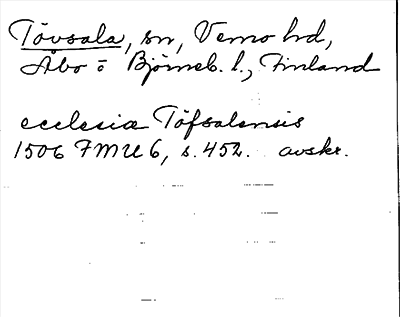 Tövsala, sn, Vemo hd,
Åbo o Björneb. l., Finland
ecclesia Töfsalensis
1506 FMU 6, s. 452. avskr.